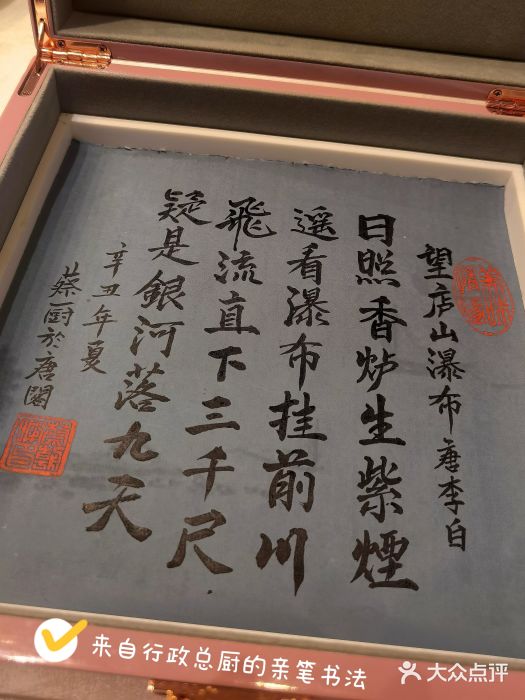 望庐山瀑布唐李白
日照香炉生紫煙
遥看瀑布挂前川
飛流直下三千尺
疑是銀河落九天
辛丑年夏
蔡厨於唐閣
来自行政总厨的亲笔书法
大众点评